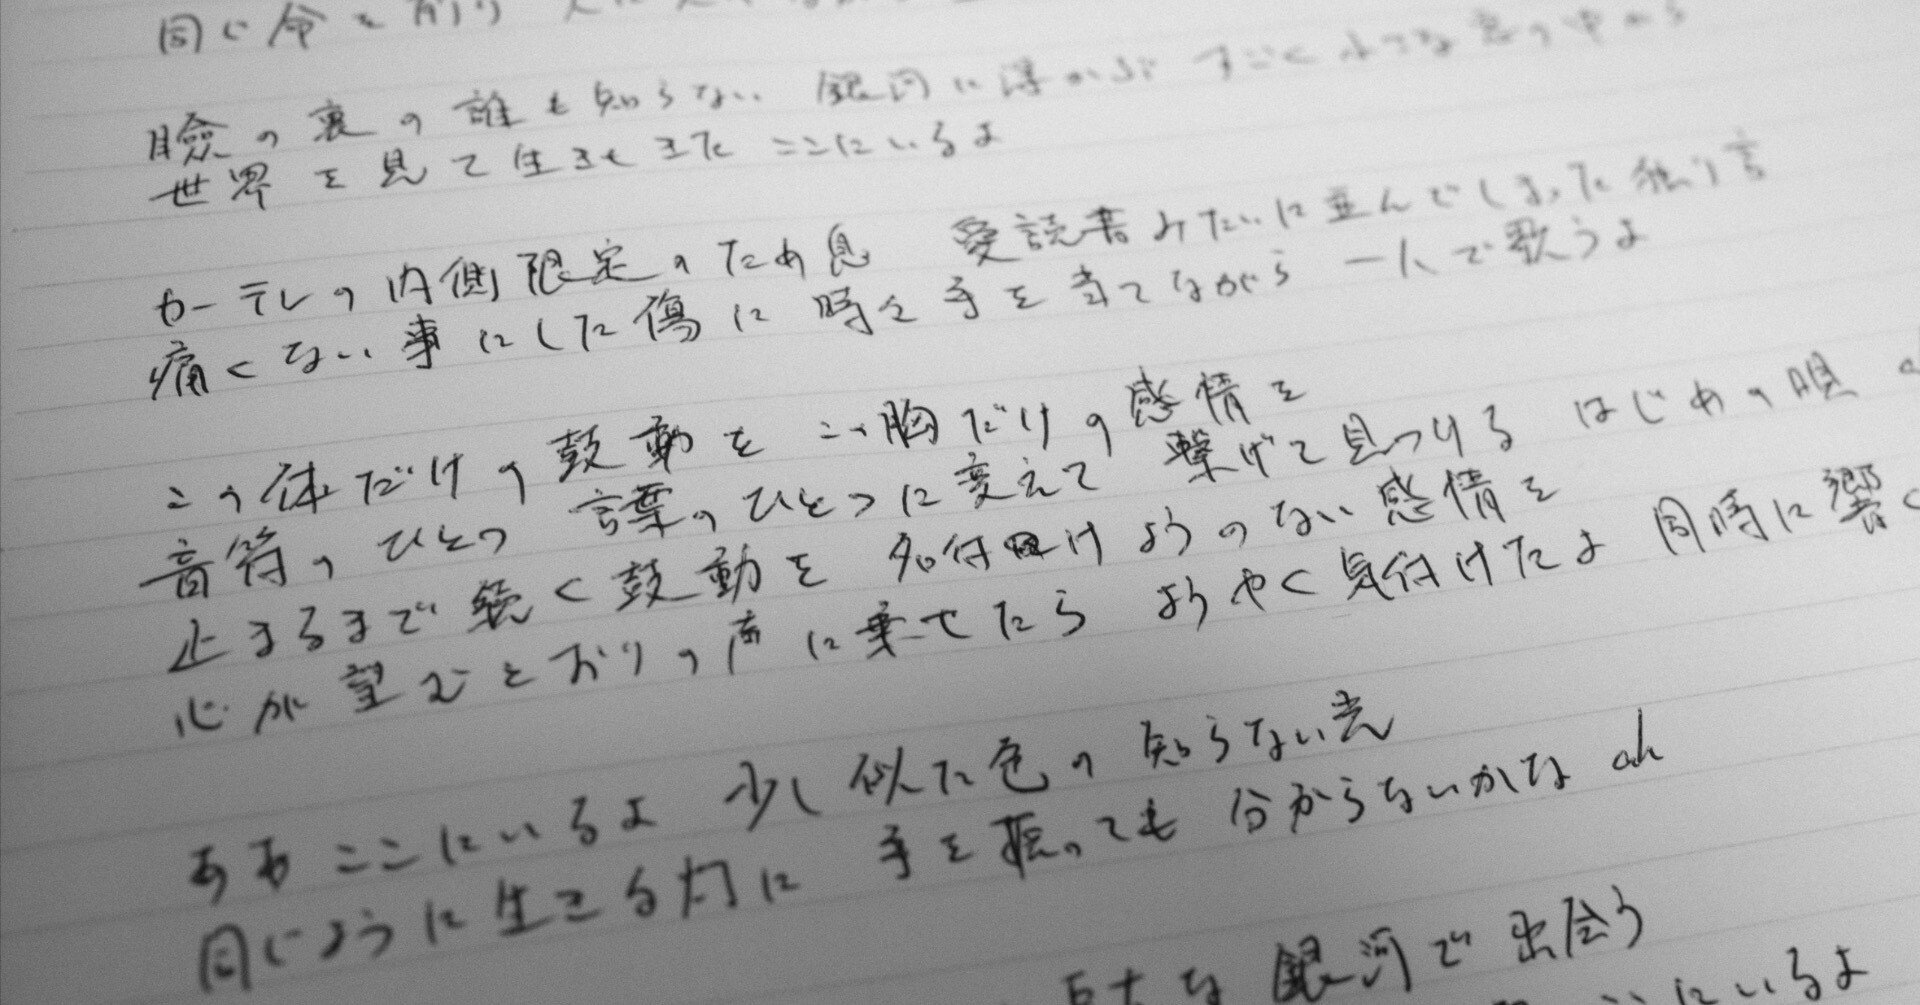 同じ命を削り
瞼の裏の誰も知らない 銀河に浮かぶ すごく小さな窓の中から
世界を見て生きてきた ここにいるよ
カーテンの内側限定のため息 愛読書みたいに並んでしまった独り言
痛くない事にした傷に 時々手を当てながら 一人で歌うよ
この体だけの鼓動を この胸だけの感情を
音符のひとつ 言葉のひとつに変えて 繋げて見つける はじめの唄
止まるまで続く鼓動を 名付けようのない感情を
心が望むとおりの声に乗せたら ようやく気付けたよ 同時に響く
ああ ここにいるよ 少し似た色の 知らない光
同じように生きる灯に 手を振っても 分からないかな ah
巨大な 銀河で 出会う
ここにいるよ